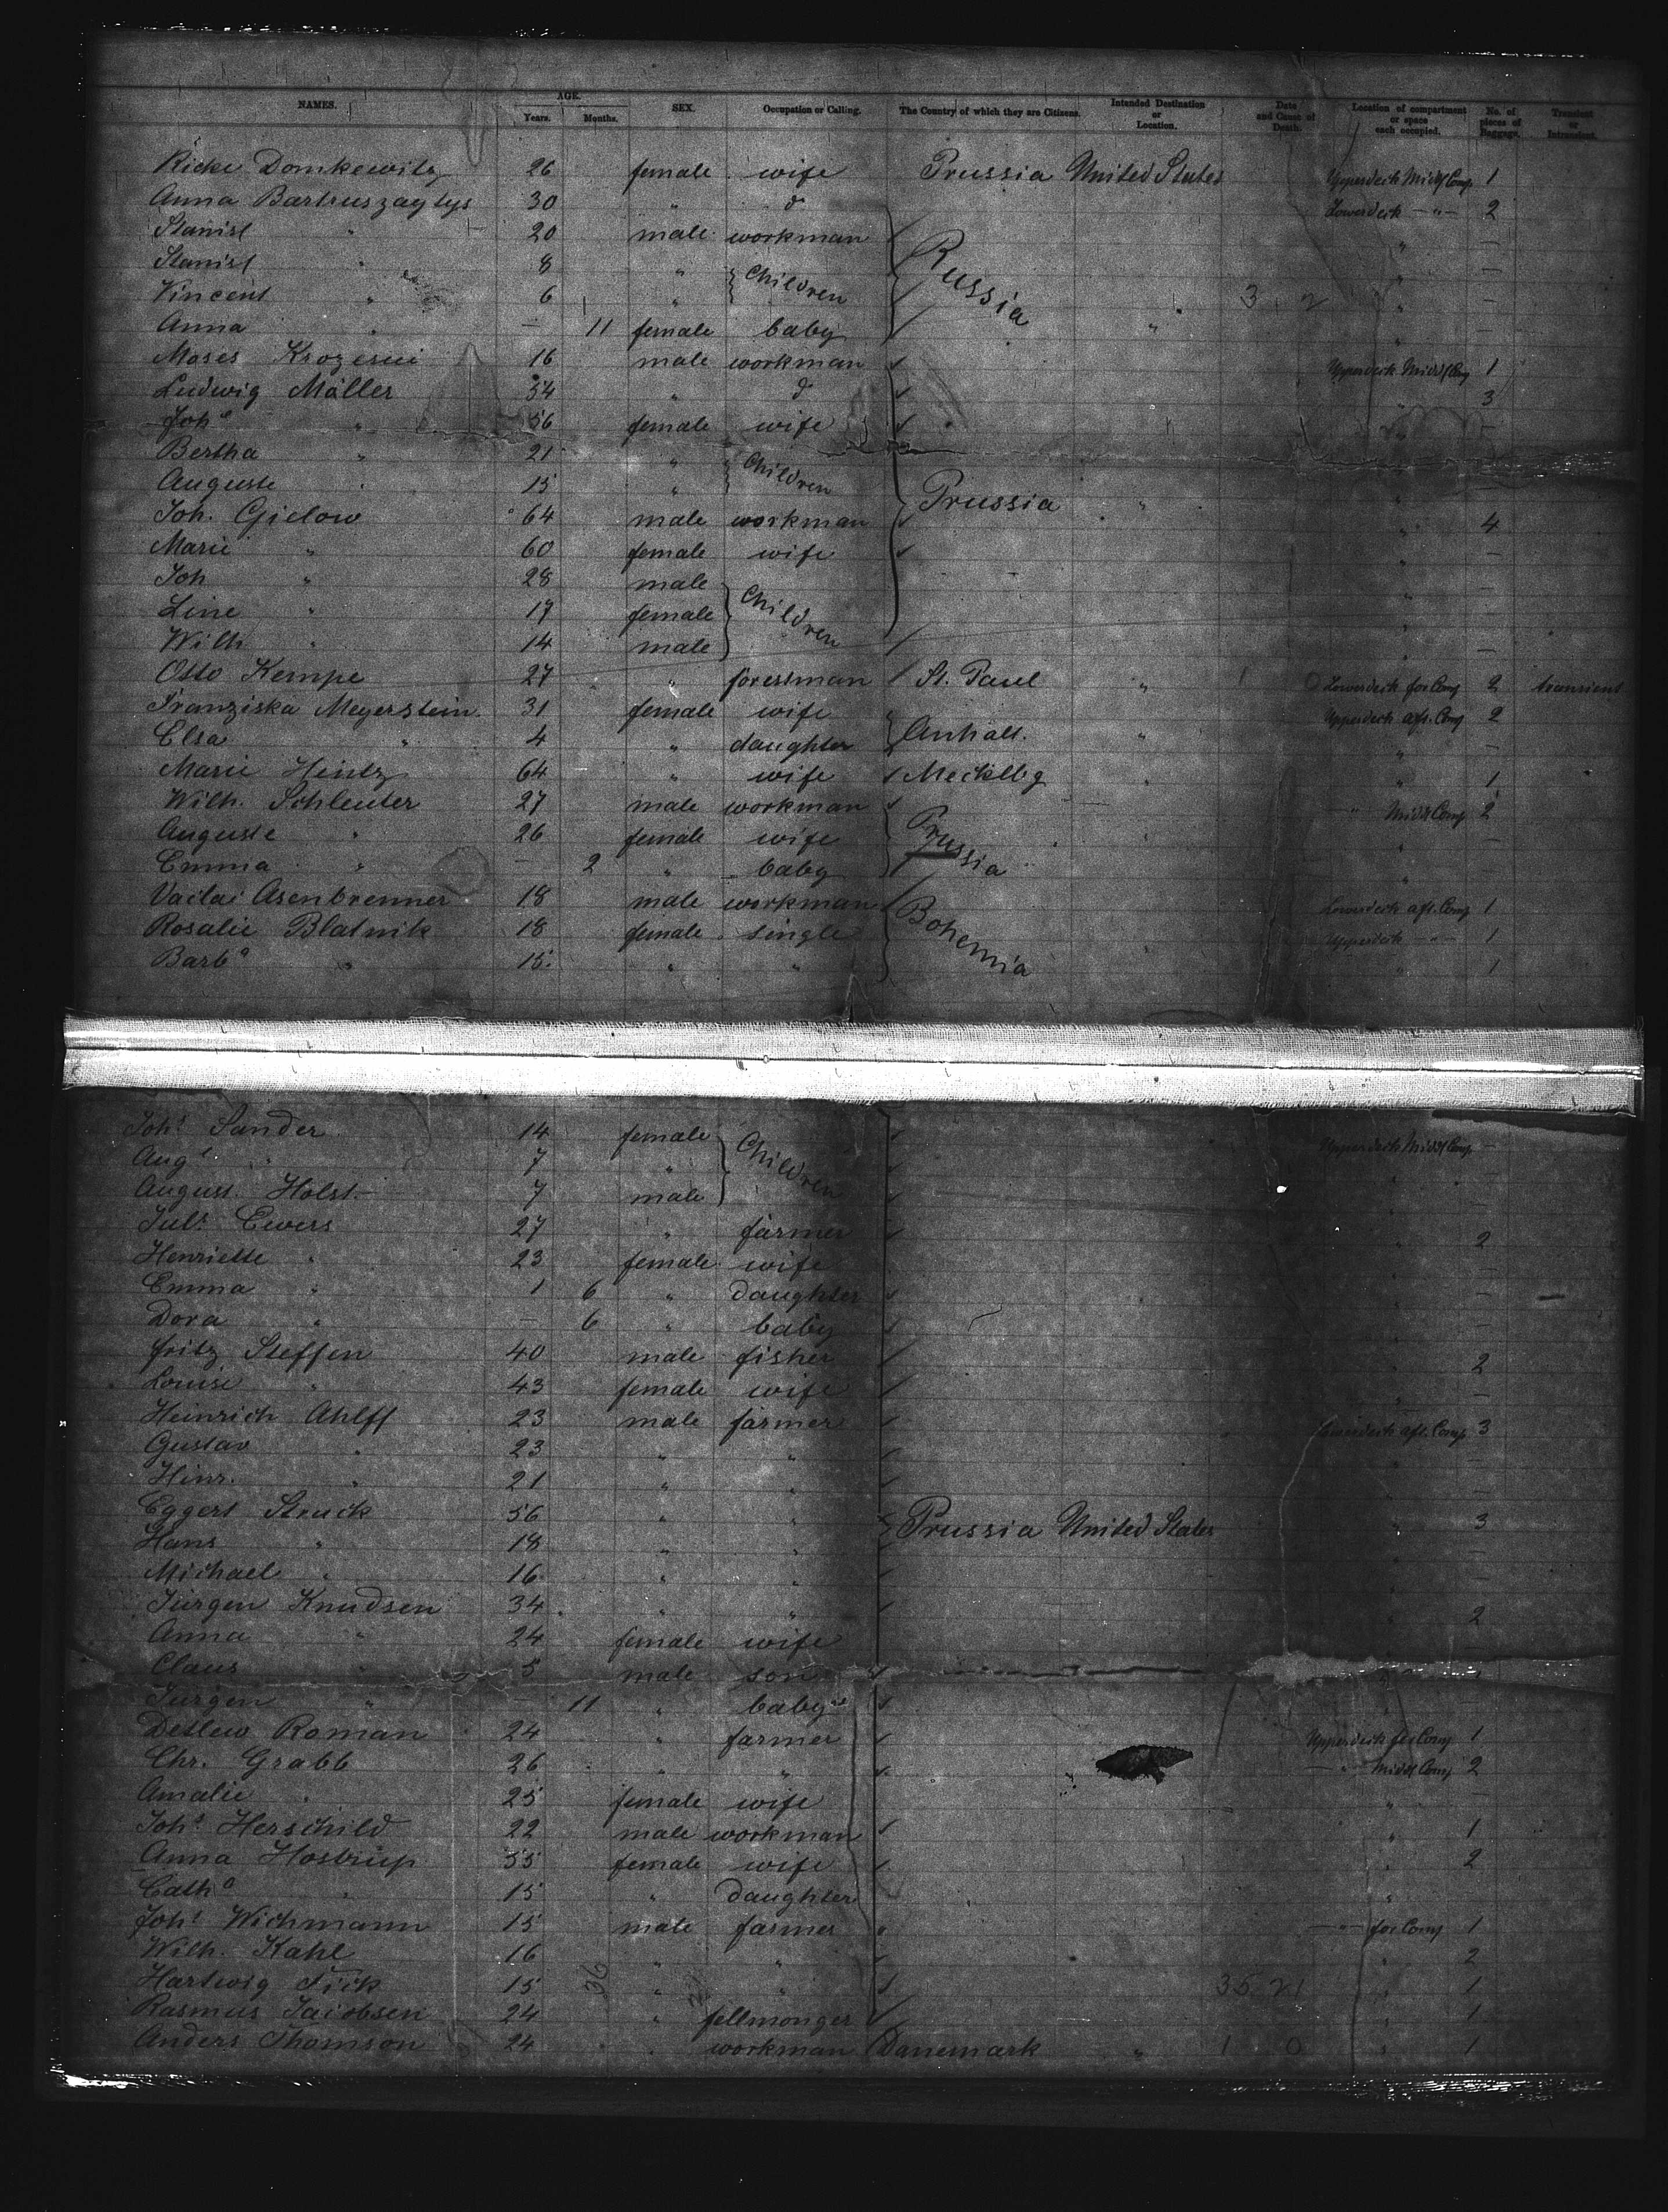 NAMES. AGE. Years. Months. SEX. Occupation or Calling. The Country of which they are Citizens. Intended Destination or Location. Date and Cause of Death. Location of compartment or space each occupied. No. of pieces of Baggage. Transient or Intransient.
Ricke Domkewitz 26 female wife Prussia United States Upperdeck Middl Comp 1
Anna Bartruszaytys 30 " d° Lowerdeck — " — 2
Stanisl " 20 male workman " —
Stanisl " 8 " Children Russia " —
Vincent " 6 " " " —
Anna " — 11 female baby " " —
Moses 16 male workman Upperdeck Middl Comp 1
Ludwig Möller 54 " d° " 3
Joh^e " 56 female wife " —
Bertha " 21 " Children
Auguste " 15 " Prussia " " —
Joh. Gielow 64 male workman " 4
Marie " 60 female wife " —
Joh " 28 male Children " —
Line " 17 female " —
Wilh " 14 male " —
Otto Kempe 27 " forestman St. Paul " 1 0 Lowerdeck for Comp 2 transient
Franziska Meyerstein 31 female wife Anhalt. " Upperdeck aft. Comp 2
Elsa " 4 " daughter " —
Marie Heintz 64 " wife Mecklbg " " 1
Wilh. Schleuter 27 male workman Prussia " Middl Comp 2
Auguste " 26 female wife " " —
Emma " — 2 " baby " —
Vaclai Asenbrenner 18 male workman Bohemia Lowerdeck aft. Comp 1
Rosalie Blatnik 18 female single " Upperdeck — " — 1
Barb^a " 15 " " " 1
Joh^s Sander 14 female Children Upperdeck Middl Comp —
Aug^e " 7 " " —
August Holst 7 male " —
Jul^s Ewers 27 " farmer " 2
Henriette " 23 female wife " —
Emma " 1 6 " daughter " —
Dora " — 6 " baby " —
Fritz Steffen 40 male fisher " 2
Louise " 43 female wife " —
Heinrich Ahlff 23 male farmer Lowerdeck aft. Comp 3
Gustav " 23 " " " —
Hinr. " 21 " " " —
Eggert Struck 56 " " Prussia United States " 3
Hans " 18 " " " —
Michael " 16 " " " —
Jürgen Knudsen 34 " " " 2
Anna " 24 female wife
Claus " 5 male son
Jürgen " — 11 " baby
Detlew Roman 24 " farmer Upperdeck for Comp 1
Chr. Grabb 26 " " " — " — Middl Comp 2
Amalie " 25 female wife " —
Joh^s Herschild 22 male workman " 1
Anna Hostrup 55 female wife " 2
Cath^a " 15 " daughter "
Joh^s Wichmann 15 male farmer — " — for Comp 1
Wilh. Kahl 16 " " " 2
Hartwig Fick 15 " " 35 21 " 1
Rasmus Jacobsen 24 " fellmonger " 1
Anders Thomson 24 " workman Danemark " 1 0 " 1